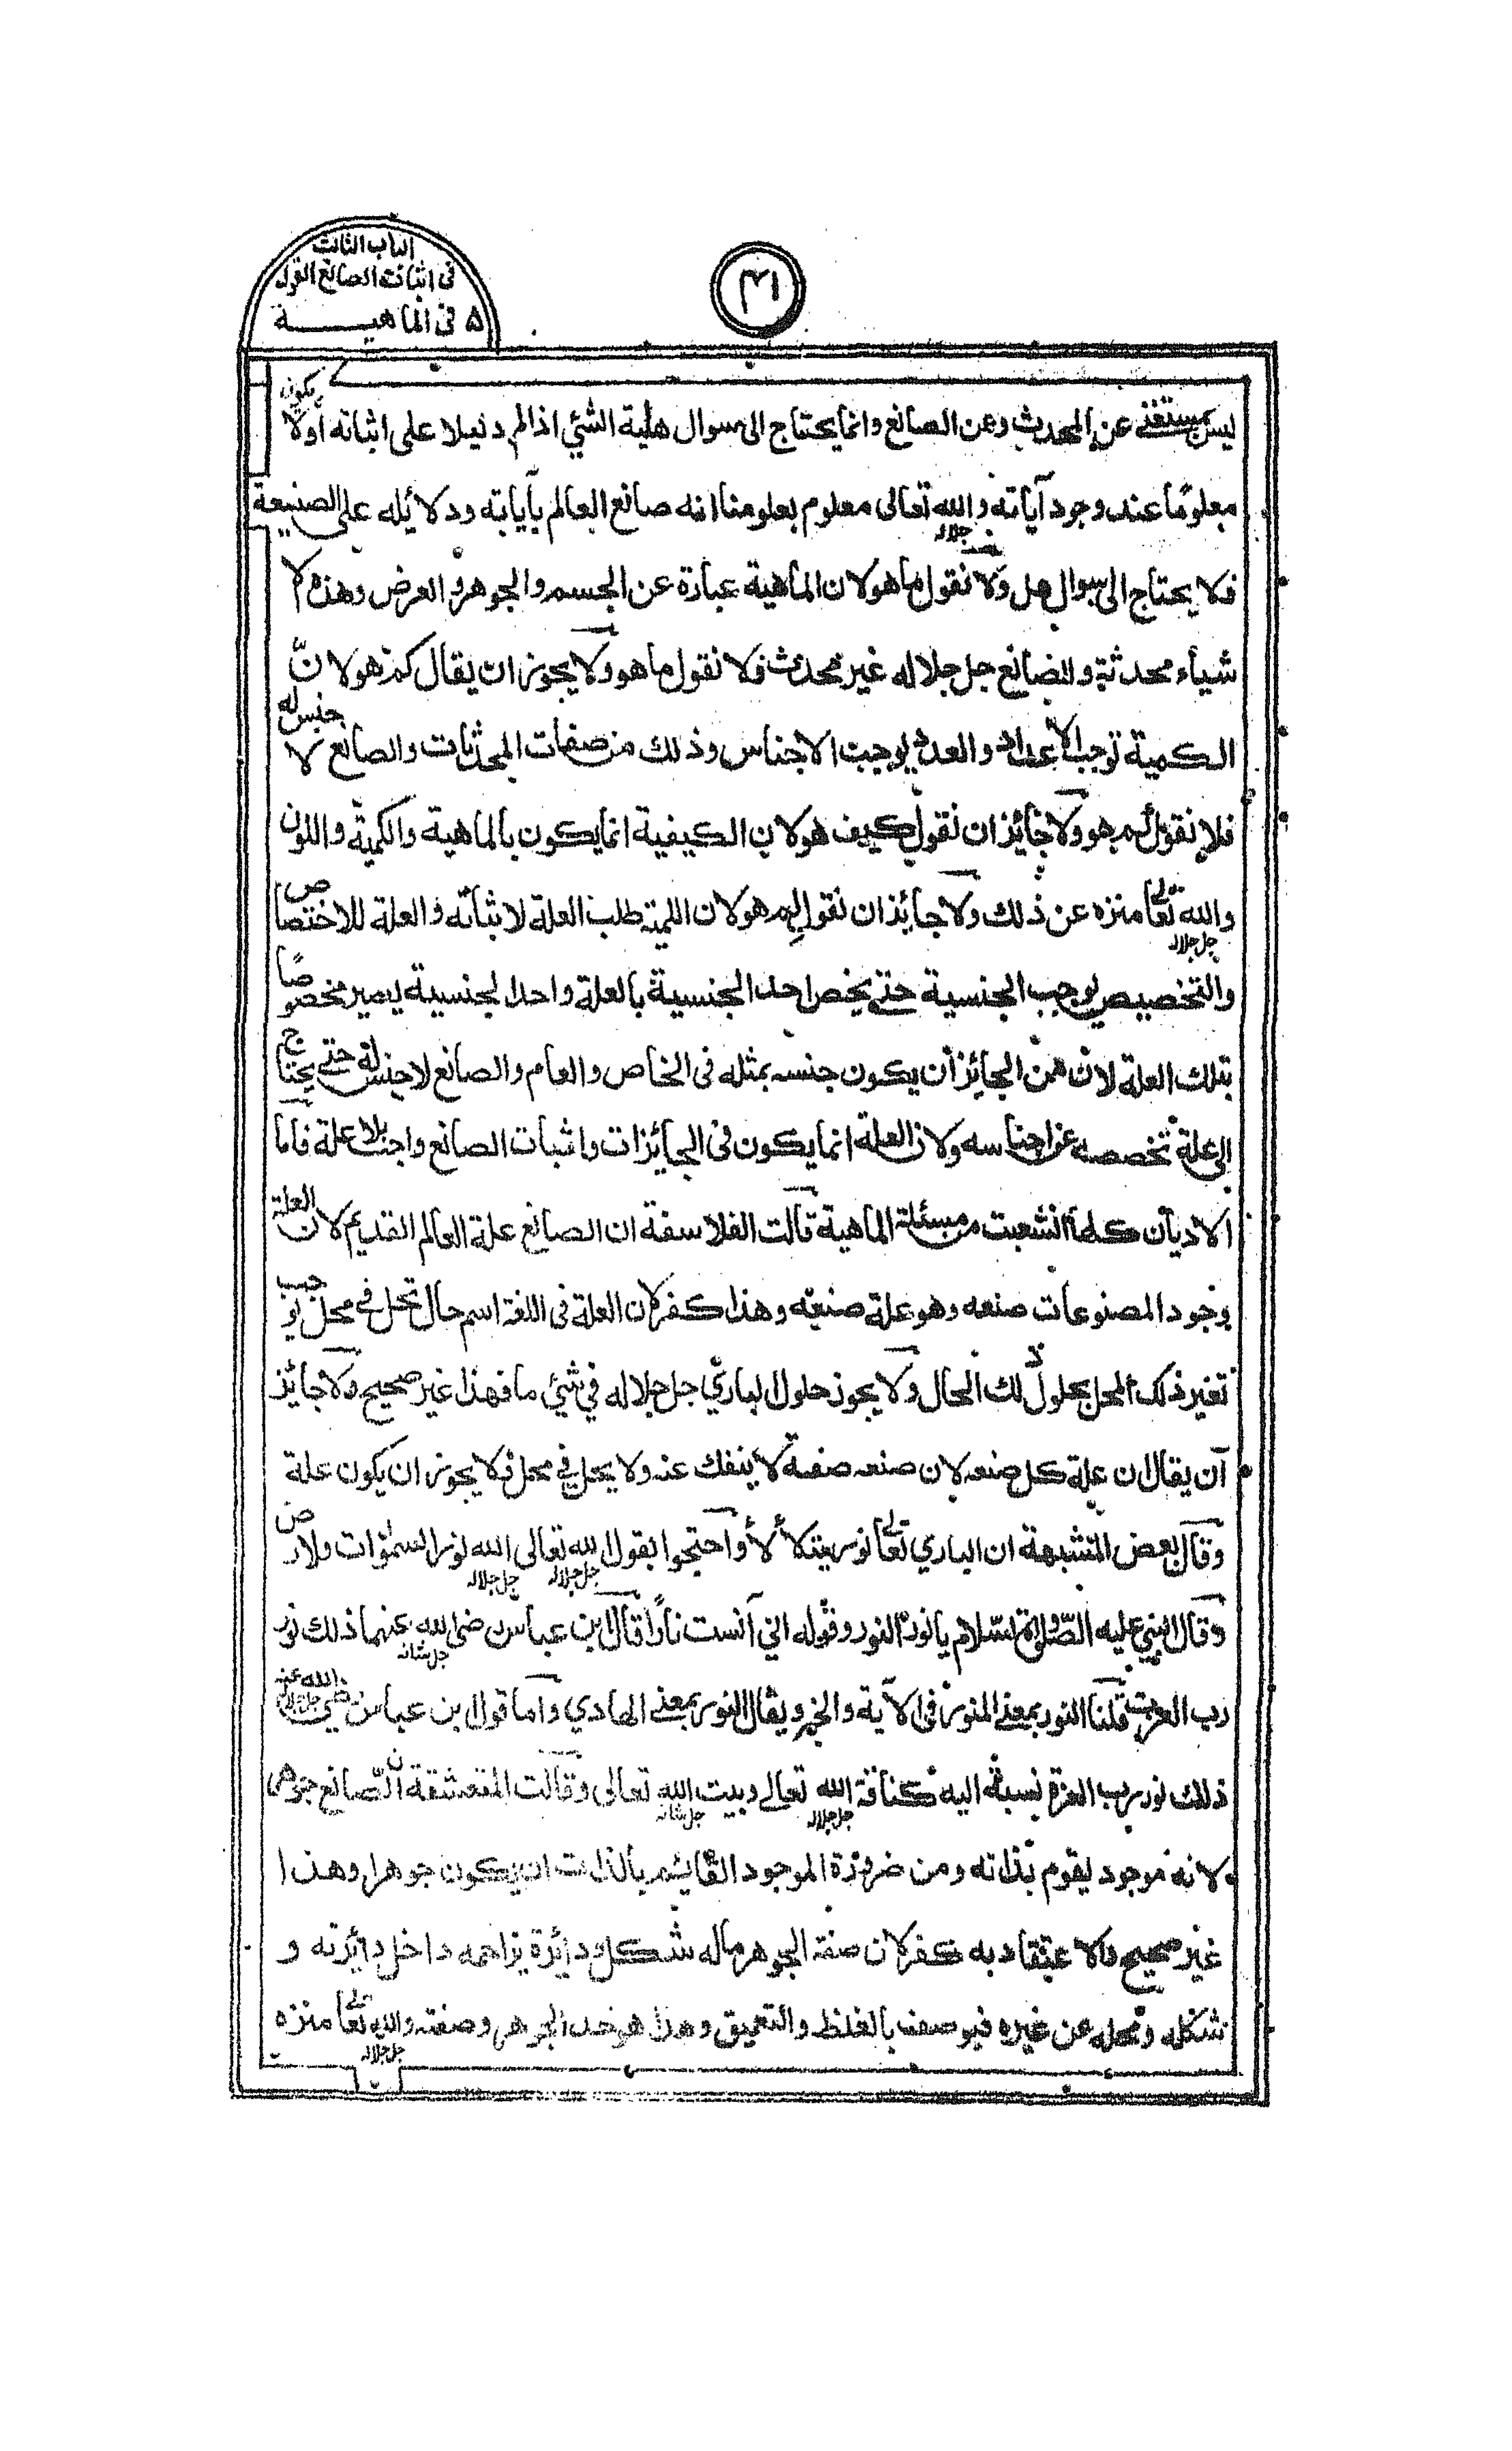 الباب الثالث
في اثبات الصانع القول
۵ في الماهيـــــة
۳۱
ليس بمستغنى عن المحدث وعن الصانع وانما يحتاج الى سوال هلية الشئي اذا لم دليلا على اثباته اولا يكون
معلومًا عند وجود آياته والله تعالى جل جلاله معلوم بعلومنا انه صانع العالم بآياته ودلائله على الصنيعة
فلا يحتاج الى سوال هل ولا نقول ما هو لان الماهية عبارة عن الجسم والجوهر والعرض وهذه لا
شياء محدثة والصانع جل جلاله غير محدث فلا نقول ما هو ولا يجوز ان يقال كم هو لانّ
الكمية توجب الاعداد والعدد يوجب الاجناس وذلك من صفات المحدثات والصانع لا جنس له
فلا نقول لم هو ولا جائز ان نقول كيف هو لان الكيفية انما يكون بالماهية والكمية واللون
والله تعالى جل جلاله منزه عن ذلك ولا جائز ان نقول لم هو لان اللمية طلب العلة لاثباته والعلة للاختصاص
والتخصيص يوجب الجنسية حتى يخص احد الجنسية بالعلة واحد الجنسية يصير مخصوصًا
بتلك العلة لان من الجائز أن يكون جنسه بمثله في الخاص والعام والصانع لا جنس له حتى يحتاج
الى علة تخصصه عن اجناسه ولان العلة انما يكون في الجائزات واثبات الصانع واجب بلا علة فاما
الاديان كلها انشعبت من مسئلة الماهية قالت الفلاسفة ان الصانع علة العالم القديم لان العلة
وجود المصنوعات صنعه وهو علة صنعه وهذا كفر لان العلة في اللغة اسم حال تحل في محل يوجب
تغير ذلك المحل بحلول ذلك الحال ولا يجوز حلول الباري جل جلاله في شئي ما فهذا غير صحيح ولا جائز
آن يقال ان علة كل صنعه لان صنعه صفة لا ينفك عنه ولا يحل في محل فلا يجوز ان يكون علة
وقال بعض المتشبهة ان الباري تعالى نور يتلألأ واحتجوا بقول الله تعالى جل جلاله الله جل جلاله نور السموات والارض
وقال النبي عليه الصّلوة والسّلام يا نور النور وقوله اني آنست نارًا قال ابن عباس رضي الله جل شانه عنهما ذلك نور
رب العزة قلنا النور بمعنى المنور في الآية والخبر ويقال النور بمعنى الهادي واما قول ابن عباس رضي الله عنه
ذلك نور رب العزة نسبة اليه كناقة الله جل جلاله تعالى وبيت الله جل شانه تعالى وقالت المتعشقة ان الصّانع جوهر
ولانه موجود يقوم بذاته ومن ضرورة الموجود القائم بالذات ان يكون جوهرا وهذا
غير صحيح والاعتقاد به كفر لان صفة الجوهر ماله شكل ودائرة يزاحمه داخل دائرته و
شكله ومحله عن غيره فيوصف بالغلظ والتعميق وهذا هو حد الجوهر وصفته والله تعالى جل جلاله منزه